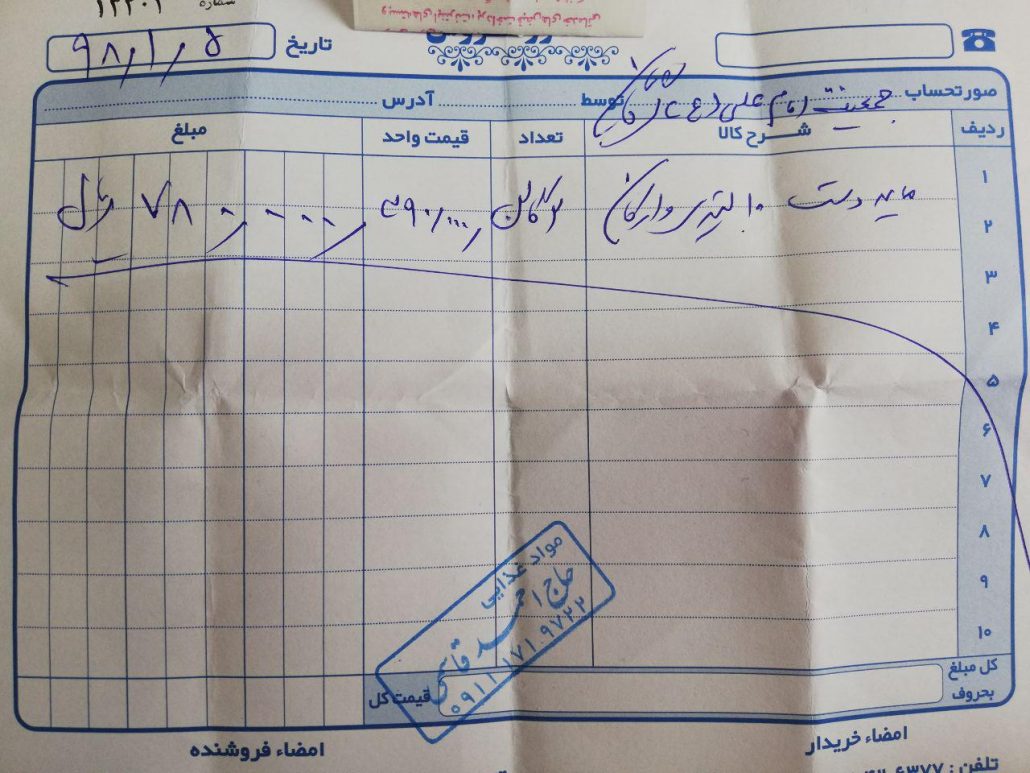 شماره
تاریخ ۹۸/۱/۵
صورتحساب جمعیت امام علی (ع) توسط آدرس
ردیف شرح کالا تعداد قیمت واحد مبلغ
۱ مایع دست ۱۰ لیتری ۳۹۰/۰۰۰ ۷۸۰/۰۰۰ ریال
۲
۳
۴
۵
۶
۷
۸
۹
۱۰
مواد غذایی
حاج احمد قاسمی
۰۹۱۱ ۱۷۱ ۹۷۲۲
کل مبلغ بحروف
قیمت کل
امضاء خریدار امضاء فروشنده
تلفن: